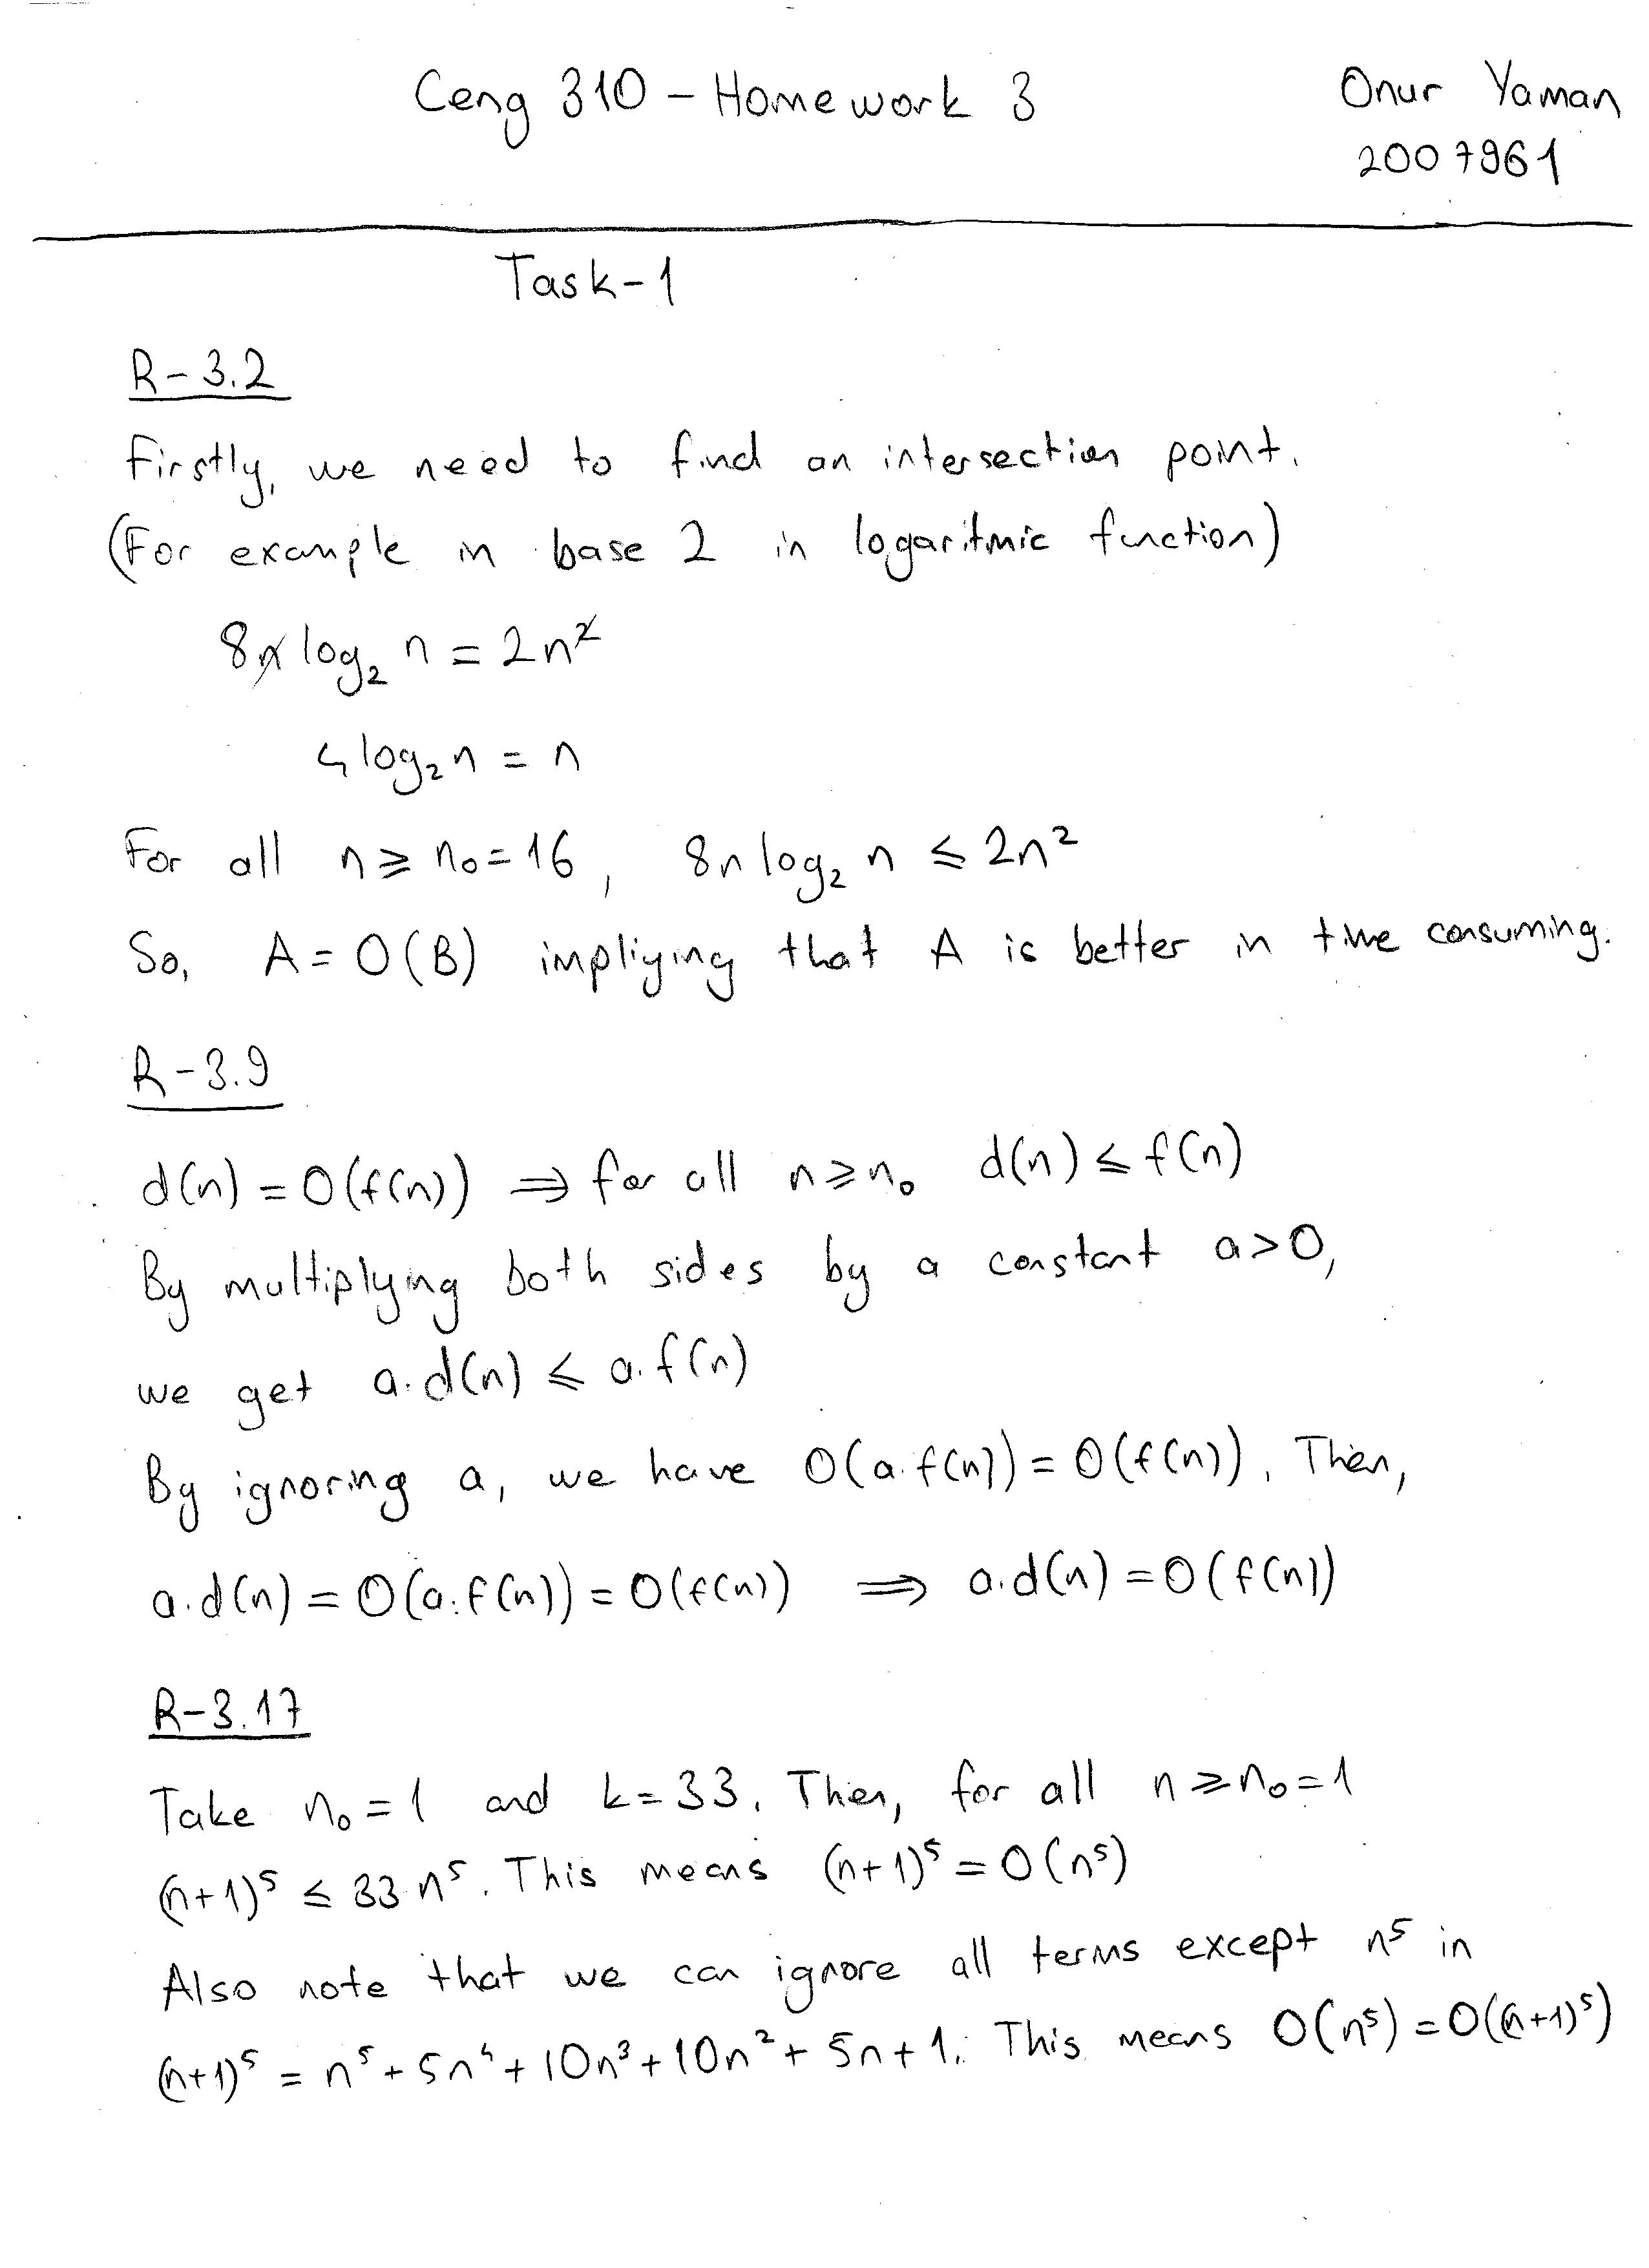 Ceng 310 - Homework 3
Onur Yaman
2007961
Task-1
R-3.2
Firstly, we need to find an intersection point.
(For example in base 2 in logaritmic function)
8n log₂ n = 2n²
4 log₂ n = n
For all n ≥ n₀ = 16, 8n log₂ n ≤ 2n²
So, A = O(B) impliying that A is better in time consuming.
R-3.9
d(n) = O(f(n)) ⇒ for all n ≥ n₀ d(n) ≤ f(n)
By multiplying both sides by a constant a > 0,
we get a.d(n) ≤ a.f(n)
By ignoring a, we have O(a.f(n)) = O(f(n)). Then,
a.d(n) = O(a.f(n)) = O(f(n)) ⇒ a.d(n) = O(f(n))
R-3.17
Take n₀ = 1 and k = 33. Then, for all n ≥ n₀ = 1
(n+1)⁵ ≤ 33.n⁵. This means (n+1)⁵ = O(n⁵)
Also note that we can ignore all terms except n⁵ in
(n+1)⁵ = n⁵ + 5n⁴ + 10n³ + 10n² + 5n + 1. This means O(n⁵) = O((n+1)⁵)